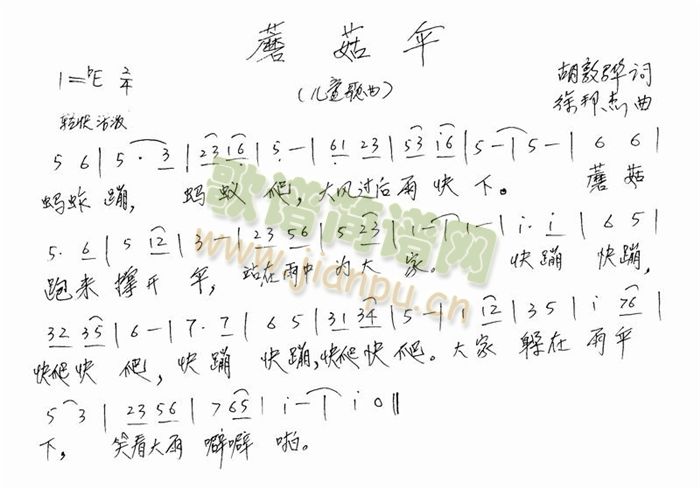 蘑 菇 伞
1=♭E 2/4
(儿童歌曲)
胡敦骅 词
徐邦杰 曲
轻快 活泼
5 6 | 5 · 3 | 23 i6 | 5 - | 61 23 | 53 i6 | 5 - | 5 - | 6 6
蚂蚱 蹦, 蚂蚁 爬, 大风过后雨 快 下。 蘑 菇
5 · 6 | 5 i2 | 3 - | 23 56 | 5 23 | i - | i - | i · i | 6 5 |
跑来 撑开 伞, 站在雨中 为大 家。 快蹦 快蹦,
32 35 | 6 - | 7 · 7 | 6 5 | 31 34 | 5 - | i i2 | 35 | i 76 |
快爬快 爬, 快蹦 快蹦,快爬快 爬。大家 躲在 雨伞
5 3 | 23 56 | 7 65 | i - | i 0 ‖
下, 笑看大雨 噼噼 啪。
歌谱简谱网
www.jianpu.cn